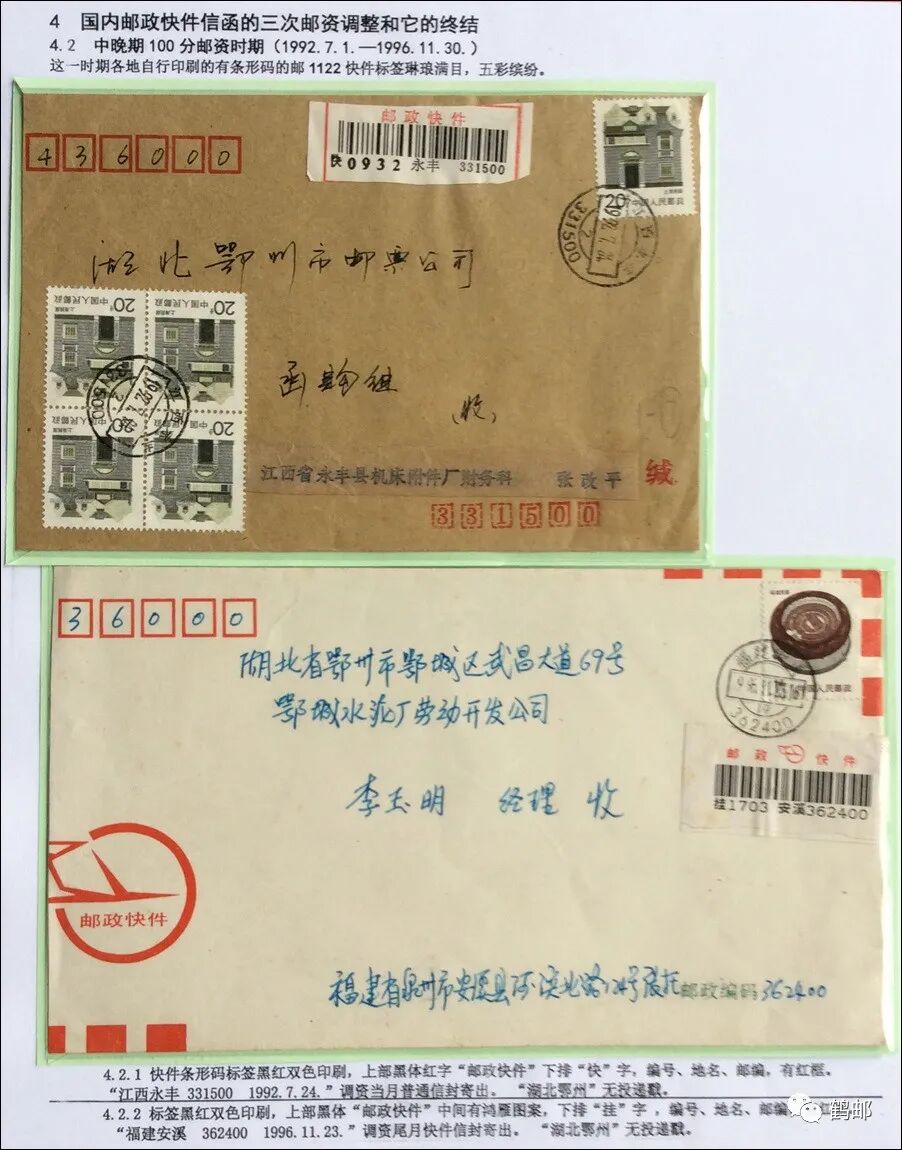 4 国内邮政快件信函的三次邮资调整和它的终结
4.2 中晚期100分邮资时期（1992.7.1.—1996.11.30.）
这一时期各地自行印刷的有条形码的邮1122快件标签琳琅满目，五彩缤纷。
436000
邮政快件
快0932 永丰 331500
20分 中国人民邮政
331500
湖北鄂州市邮票公司
20分 中国人民邮政
上海民居
20分 中国人民邮政
上海民居
20分 中国人民邮政
上海民居
20分 中国人民邮政
上海民居
331500
函翰组
（收）
江西省永丰县机床附件厂财务科 张改平 缄
331500
36000
湖北省鄂州市鄂城区武昌大道69号
鄂城水泥厂劳动开发公司
中国人民邮政
362400
邮政 快件
挂1703 安溪362400
李玉明 经理 收
邮政快件
福建省泉州市安
邮政编码362400
4.2.1 快件条形码标签黑红双色印刷，上部黑体红字“邮政快件”下排“快”字，编号、地名、邮编，有红框。
“江西永丰 331500 1992.7.24.”调资当月普通信封寄出。 “湖北鄂州”无投递戳。
4.2.2 标签黑红双色印刷，上部黑体“邮政快件”中间有鸿雁图案，下排“挂”字，编号、地名、邮编
“福建安溪 362400 1996.11.23.”调资尾月快件信封寄出。 “湖北鄂州”无投递戳。
鹤邮